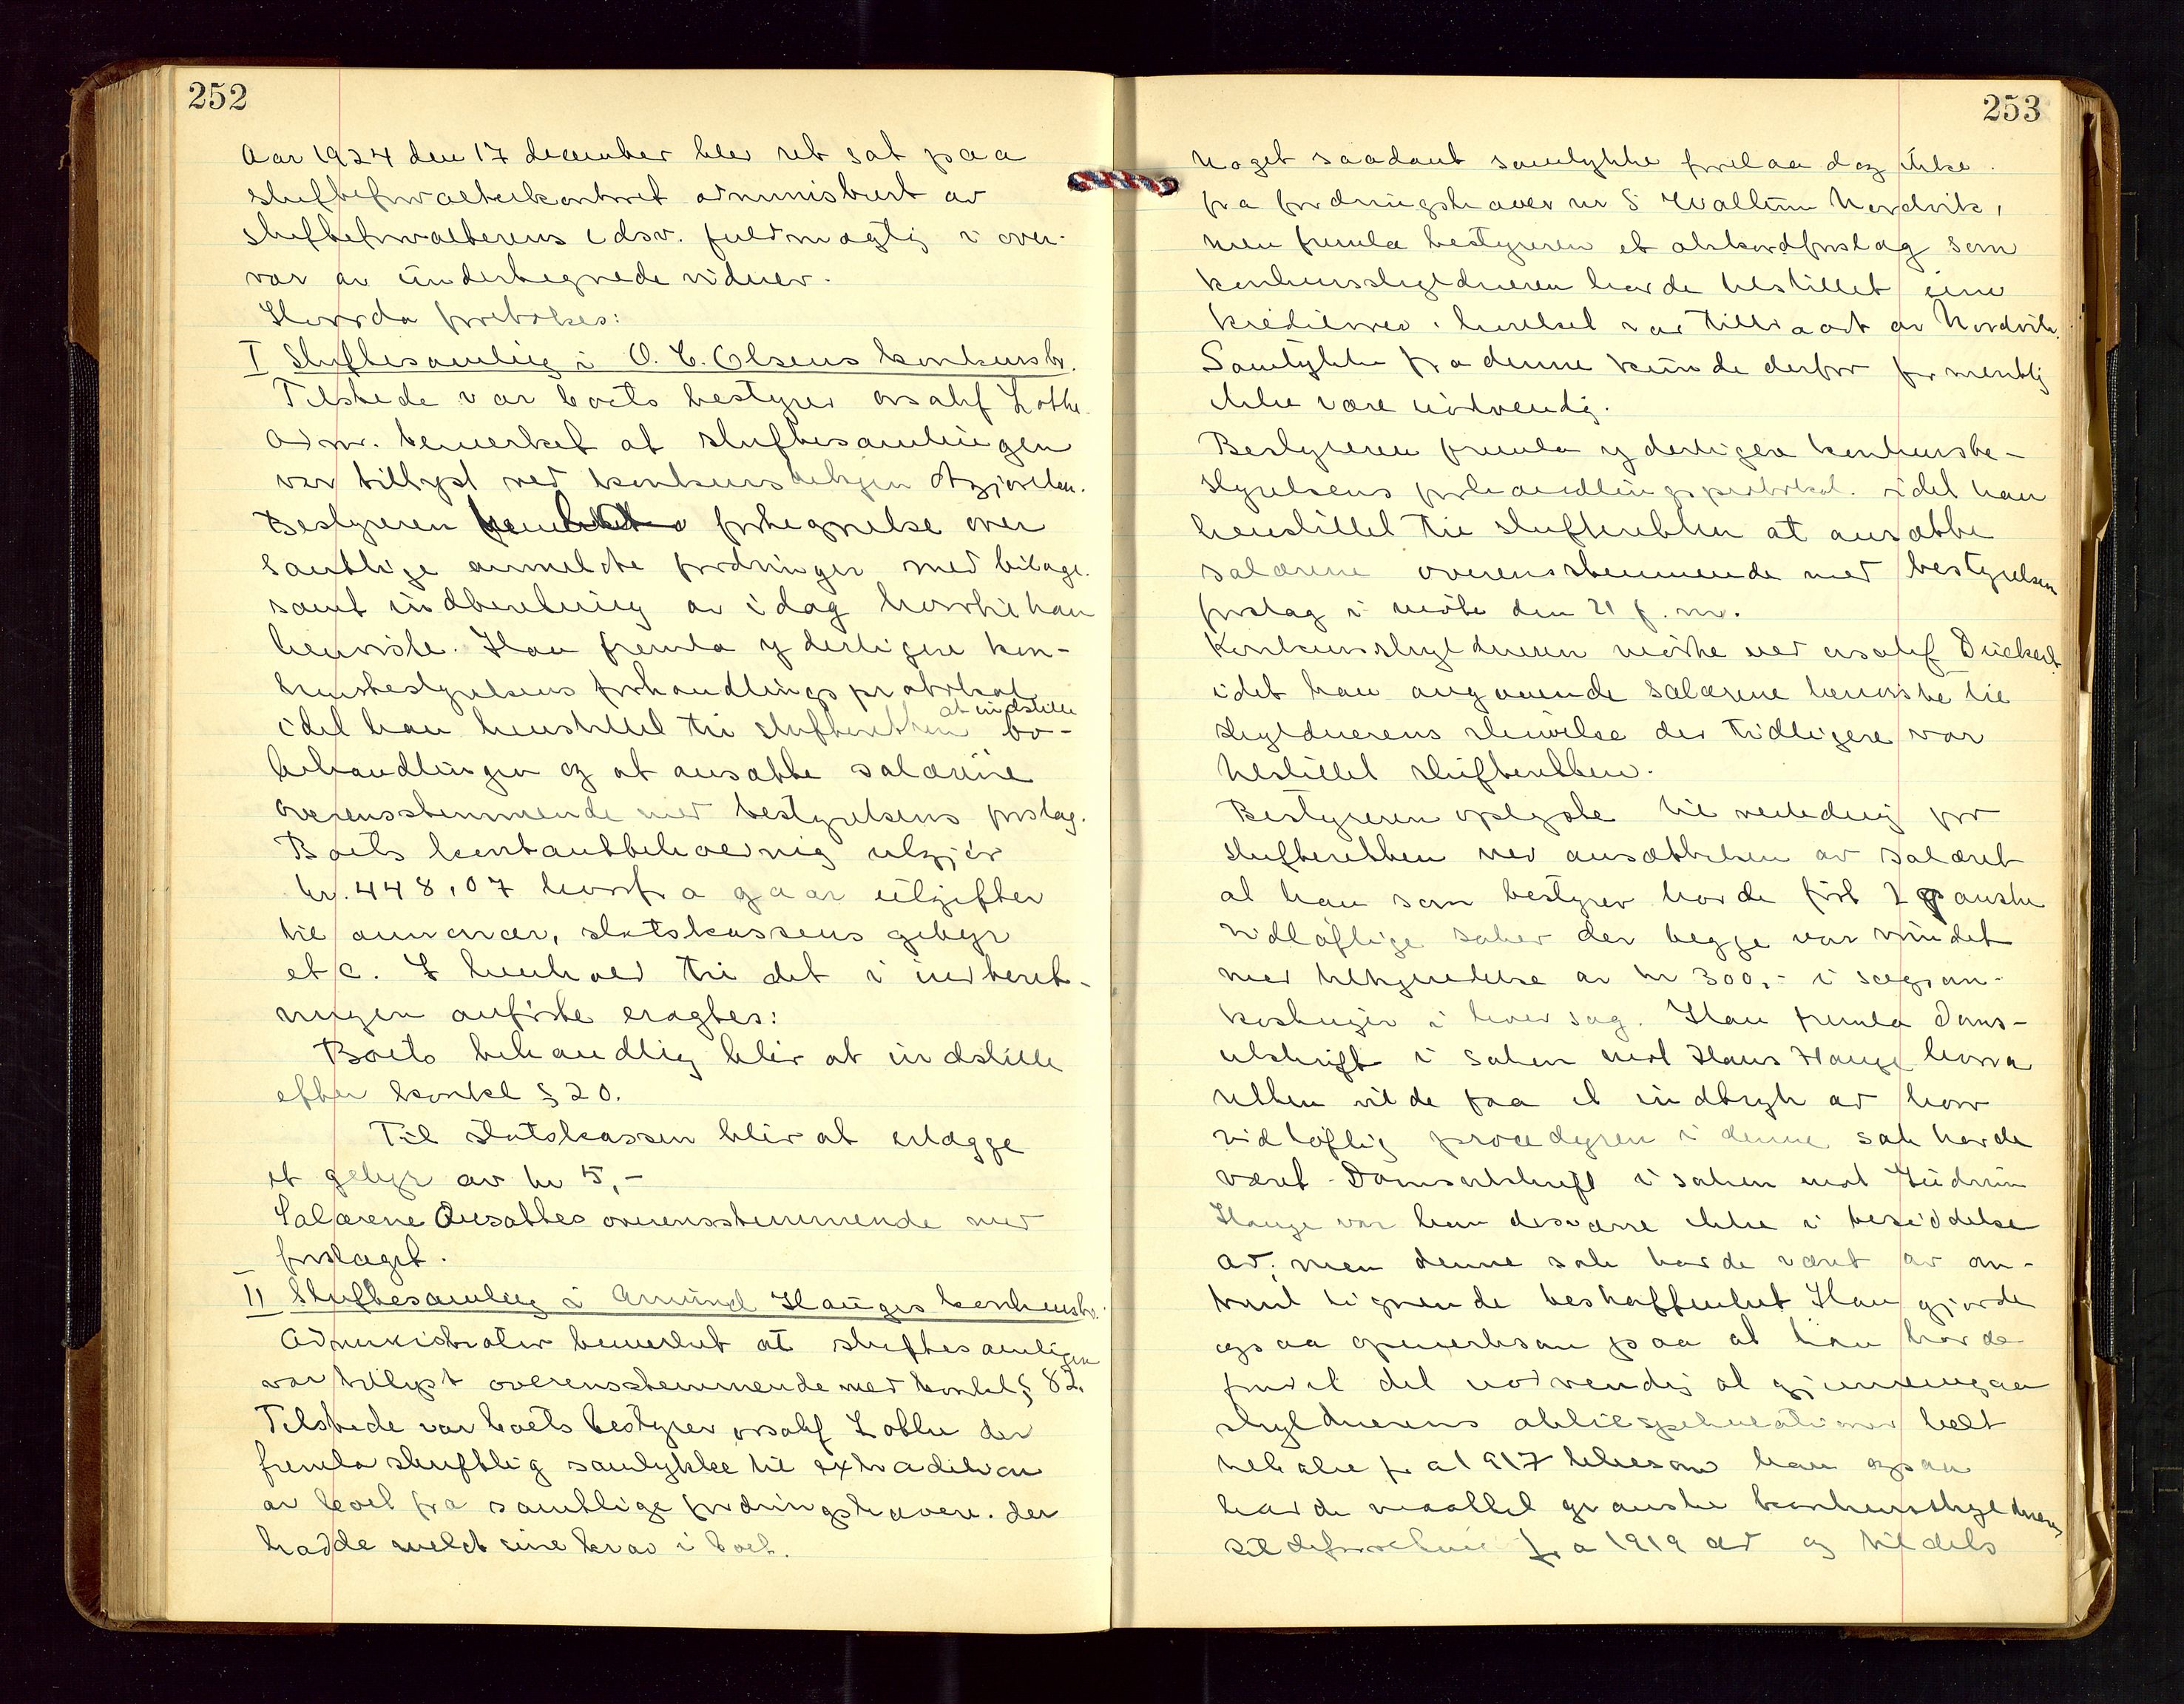 252
Aar 1924 den 17 december blev ret sat paa
skifteforvalterkontoret administrert av
skifteforvalterens edsv. fuldmægtig i over-
vær av undertegnede vidner.
Hvorda foretokes:
I Skiftesamling i O. C. Olsens konkursb.
Tilstede var boets bestyrer o.r.sakf. Lothe.
Adm. bemerket at skiftesamlingen
var tillyst ved konkursaapningen
Bestyreren fortegnelse over
samtlige anmeldte fordringer med bilage.
samt indberetning av idag hvortil han
henviste. Han fremla yderligere kon-
kursbestyrelsens forhandlingsprotokol
idet han henstillet til skifteretten at indstille bo-
behandlingen og at ansætte salærerne
overensstemmende med bestyrelsens forslag.
Boets kontantbeholdning utgjør
kr. 448,07 hvorfra gaar utgifter
til annoncer, statskassens gebyr
etc. I henhold til det i indberet-
ningen anførte eragtes:
Boets behandling blir at indstille
efter konkl § 20.
Til statskassen blir at erlægge
et gebyr av kr 5,-
Salærene Ansættes overensstemmende med
forslaget.
II Skiftesamling i Amund Hauges konkursb.
Administrator bemerket at skiftesamlingen
var tillyst overensstemmende med konkl. § 82.
Tilstede var boets bestyrer o.r.sakf Lothe der
fremla skriftlig samtykke til extradition
av boet fra samtlige fordringshavere. der
hadde meldt sine krav i boet.
253
Noget saadant samtykke forelaa dog ikke.
fra fordringshaver nr 8 Wallum Nordvik,
men fremla bestyreren et akkordforslag som
konkursskyldneren havde tilstillet sine
kreditorer, hvilket var tiltraadt av Nordvik.
Samtykke fra denne kunde derfor formentlig
ikke være nødvendig.
Bestyreren fremla yderligere konkursbe-
styrelsens forhandlingsprotokol. idet han
henstillet til skifteretten at ansætte
salærene overensstemmende med bestyrelsens
forslag i møte den 21 f. m.
Konkursskyldneren møtte ved o.r.sakf Dückert
idet han angaaende salærene henviste til
skyldnerens skrivelse der tidligere var
tilstillet skifteretten.
Bestyreren oplyste til veiledning for
skifteretten ved ansættelsen av salæret
at han som bestyrer havde ført 2 ganske
vidløftige saker der begge var vundet
med tilkjendelse av kr 300,- i sagsom-
kostninger i hver sag. Han fremla doms-
utskrift i saken mot Hans Hauge hvorav
retten vilde faa et indtryk av hvor
vidløftig proceduren i denne sak havde
været. Domsutskrift i saken mot Gudrun
Hauge var han desværre ikke i besiddelse
av; men denne sak havde været av om-
trent lignende beskaffenhet Han gjorde
ogsaa opmerksom paa at han havde
fundet det nødvendig at gjennemgaa
skyldnerens aktiespekulationer helt
tilbake fra 1917 likesom han ogsaa
havde maattet granske konkursskyldnerens
fra 1919 av og tildels